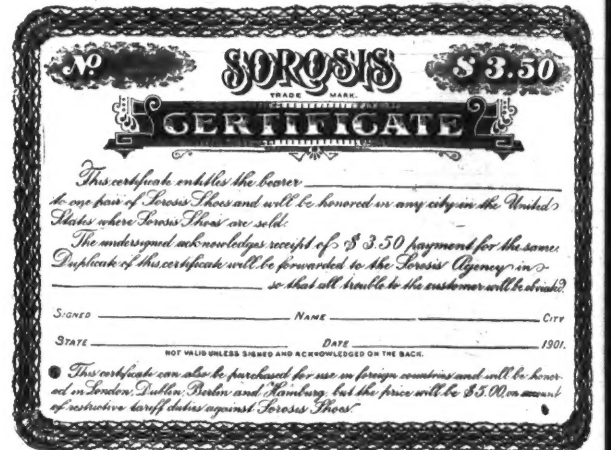 Nº SOROSIS $ 3.50
TRADE MARK.
CERTIFICATE
This certificate entitles the bearer
to one pair of Sorosis Shoes and will be honored in any city in the United
States where Sorosis Shoes are sold.
The undersigned acknowledges receipt of $ 3.50 payment for the same.
Duplicate of this certificate will be forwarded to the Sorosis Agency in
so that all trouble to the customer will be obviated.
SIGNED NAME CITY
STATE DATE 1901.
NOT VALID UNLESS SIGNED AND ACKNOWLEDGED ON THE BACK.
This certificate can also be purchased for use in foreign countries and will be honor-
ed in London, Dublin, Berlin and Hamburg, but the price will be $5.00, on account
of restrictive tariff duties against Sorosis Shoes.